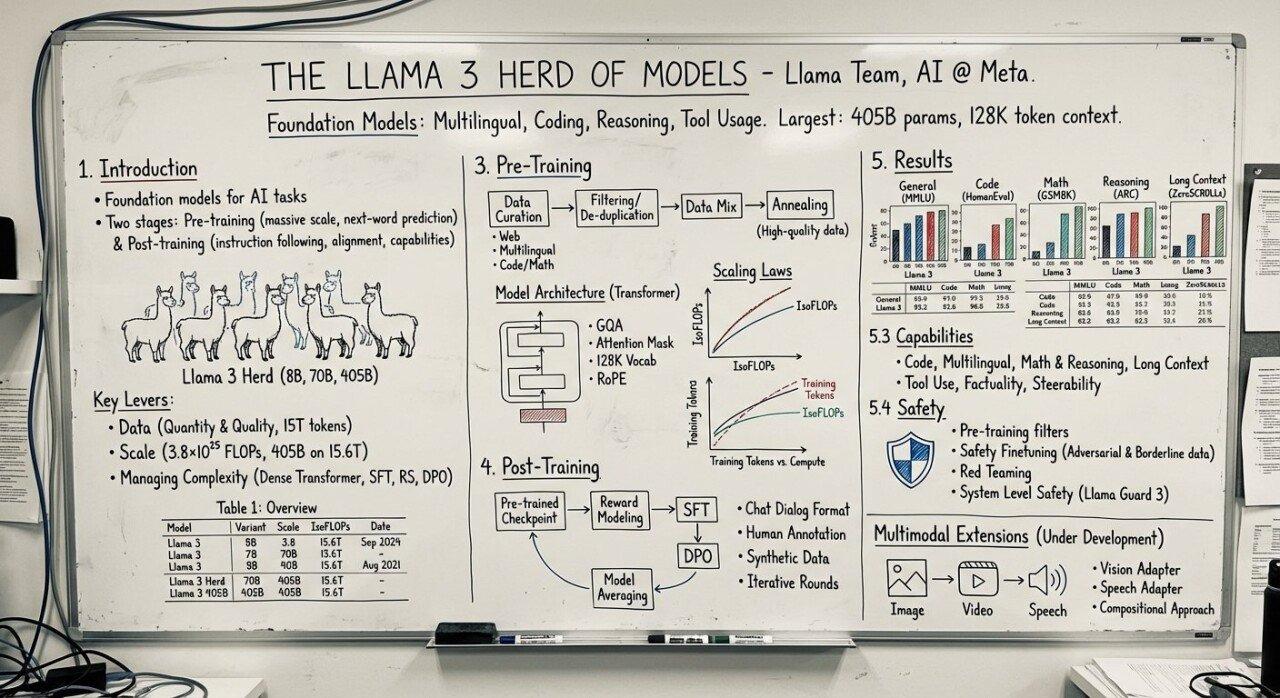 THE LLAMA 3 HERD OF MODELS – Llama Team, AI @ Meta.
Foundation Models: Multilingual, Coding, Reasoning, Tool Usage. Largest: 405B params, 128K token context.
1. Introduction
• Foundation models for AI tasks
• Two stages: Pre-training (massive scale, next-word prediction)
& Post-training (instruction following, alignment, capabilities)
Llama 3 Herd (8B, 70B, 405B)
Key Levers:
• Data (Quantity & Quality, 15T tokens)
• Scale (3.8×10²⁵ FLOPs, 405B on 15.6T)
• Managing Complexity (Dense Transformer, SFT, RS, DPO)
Table 1: Overview
Model Variant Scale IseFLOPs Date
Llama 3 3.8 15.6T Sep 2024
Llama 3 70B 13.6T -
Llama 3 40B 15.6T Aug 2021
Llama 3 Herd 70B 405B 15.6T -
Llama 3 405B 405B 405B 15.6T -
3. Pre-Training
Data Curation
Filtering/ De-duplication
Data Mix
Annealing
(High-quality data)
• Web
• Multilingual
• Code/Math
Model Architecture (Transformer)
• GQA
• Attention Mask
• 128K Vocab
• RoPE
Scaling Laws
IsoFLOPs
IsoFLOPs
IsoFLOPs
Training Tokens
Training Tokens
IsoFLOPs
Training Tokens vs. Compute
4. Post-Training
Pre-trained Checkpoint
Reward Modeling
SFT
DPO
Model Averaging
• Chat Dialog Format
• Human Annotation
• Synthetic Data
• Iterative Rounds
5. Results
General (MMLU)
Code (HumanEval)
Math (GSM8K)
Reasoning (ARC)
Long Context (ZeroSCROLLs)
Llama 3
Llama 3
Llama 3
Llama 3
Llama 3
MMLU Code Math
General
Llama 3
MMLU Code Math
Code
Reasoning
Long Context
5.3 Capabilities
• Code, Multilingual, Math & Reasoning, Long Context
• Tool Use, Factuality, Steerability
5.4 Safety
• Pre-training filters
• Safety Finetuning (Adversarial & Borderline data)
• Red Teaming
• System Level Safety (Llama Guard 3)
Multimodal Extensions (Under Development)
Image
Video
Speech
• Vision Adapter
• Speech Adapter
• Compositional Approach